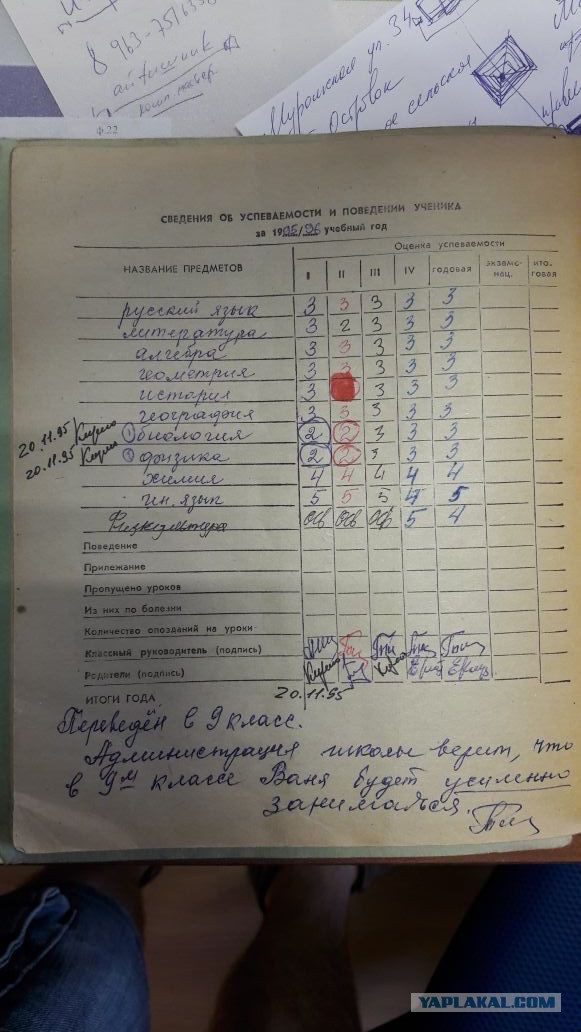 8 963-7516338
айтишник
комп. мастер.
Муромская ул. 34
Островок
ое сельская
ф.22
СВЕДЕНИЯ ОБ УСПЕВАЕМОСТИ И ПОВЕДЕНИИ УЧЕНИКА
за 1995/96 учебный год
НАЗВАНИЕ ПРЕДМЕТОВ Оценка успеваемости
I II III IV годовая экзаме-нац. ито-говая
русский язык 3 3 3 3 3
литература 3 2 3 3 3
алгебра 3 3 3 3 3
геометрия 3 3 3 3 3
история 3 3 3 3
география 3 3 3 3 3
20.11.95 1 биология 2 2 3 3 3
20.11.95 2 физика 2 2 3 3 3
химия 4 4 4 4 4
ин. язык 5 5 3 4 5
Физкультура осв осв осв 5 4
Поведение
Прилежание
Пропущено уроков
Из них по болезни
Количество опозданий на уроки
Классный руководитель (подпись)
Родители (подпись)
ИТОГИ ГОДА 20.11.95
Переведён в 9 класс.
Администрация школы верит, что
в 9м классе Ваня будет усиленно
заниматься.
YAPLAKAL.COM